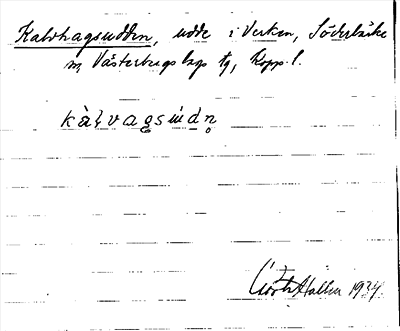 Kalvhagsudden, udde i Verken, Söderbärke
sn, Västerbergslags tg, Kopp. l.
kàḷvagsúdn̥
1934